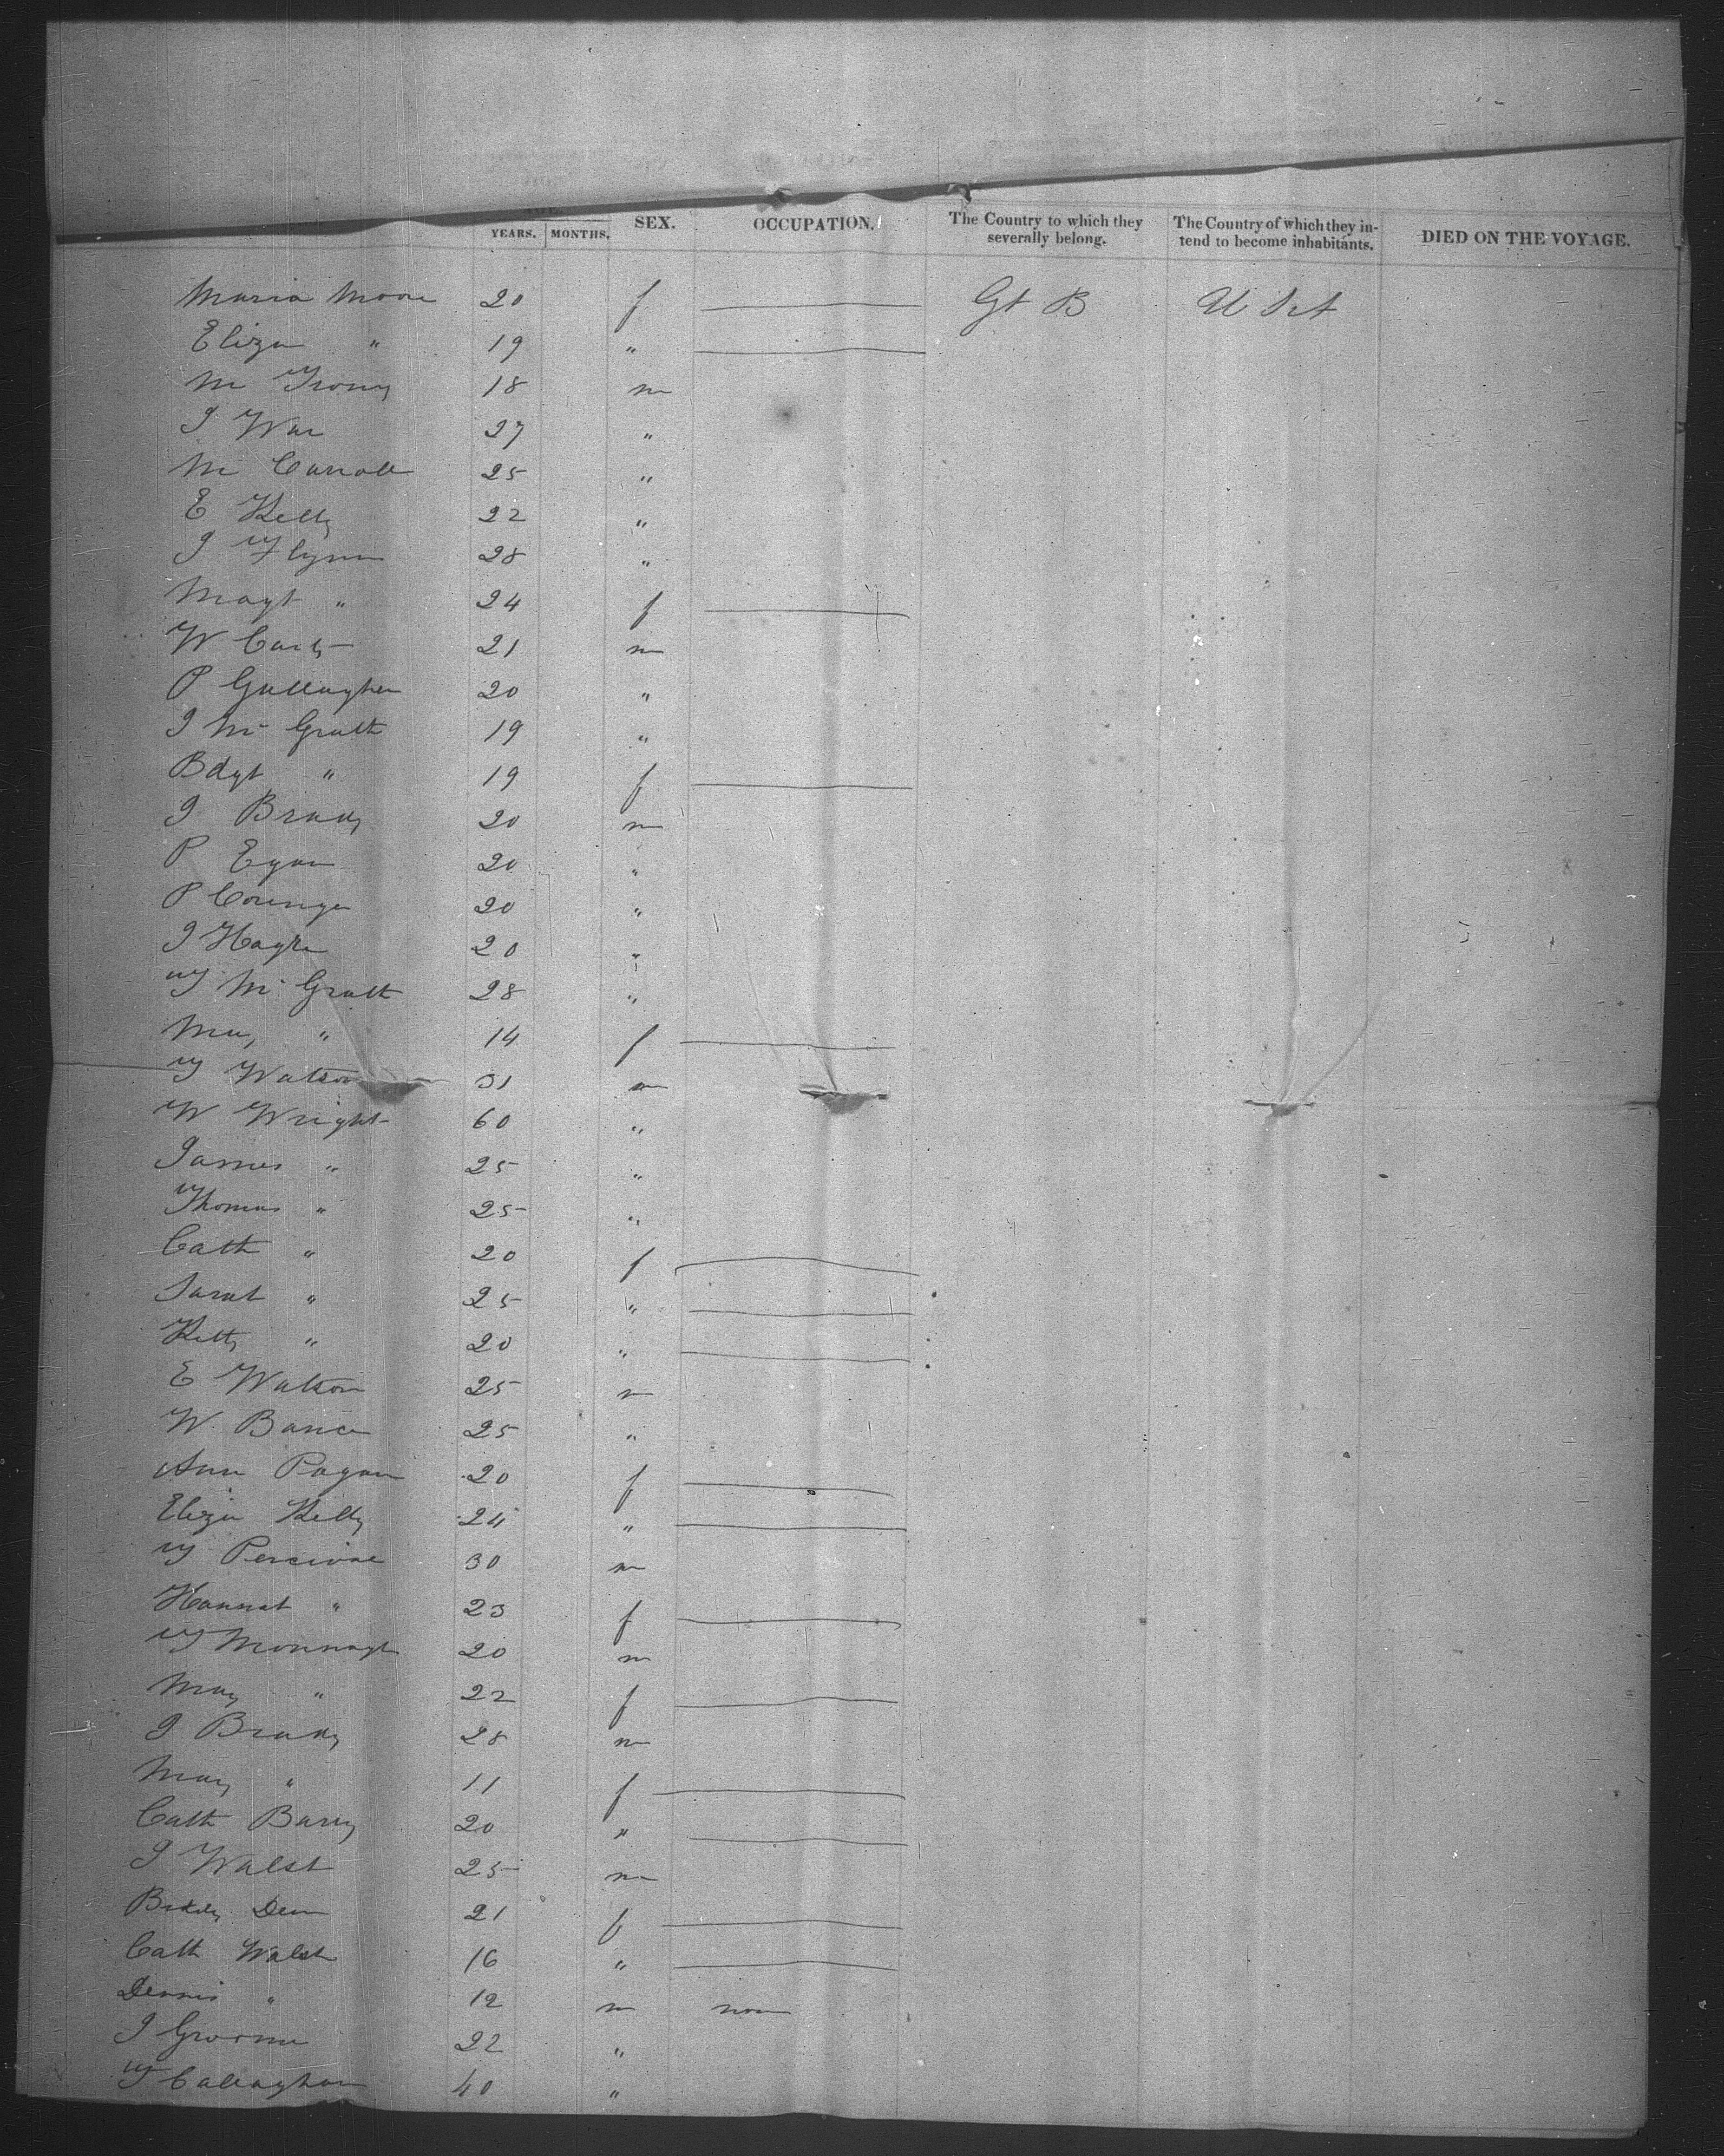 YEARS. MONTHS. SEX. OCCUPATION. The Country to which they severally belong. The Country of which they intend to become inhabitants. DIED ON THE VOYAGE.
Maria Moore 20 f Gt B U Sts
Eliza " 19 "
M 18 m
J War 27 "
M Carroll 25 "
E Kelly 22 "
J Flynn 28 "
Magt " 24 f
W 21 m
P Gallagher 20 "
J McGrath 19 "
Bdgt " 19 f
J Brady 20 m
P Egan 20 "
P 20 "
J 20 "
T McGrath 28 "
Mary " 14 f
T Watson 31 m
W Wright 60 "
James " 25 "
Thomas " 25 "
Cath " 20 f
Sarah " 25 "
Kitty " 20 "
E Watson 25 m
W. 25 "
Ann 20 f
Eliza Kelly 24 "
T Percival 30 m
Hannah " 23 f
T Monnagh 20 m
Mary " 22 f
J Brady 28 m
Mary " 11 f
Cath Barry 20 "
J Walsh 25 m
Biddy Dean 21 f
Cath Walsh 16 "
Dennis " 12 m none
J Groome 22 "
T Callaghan 40 "